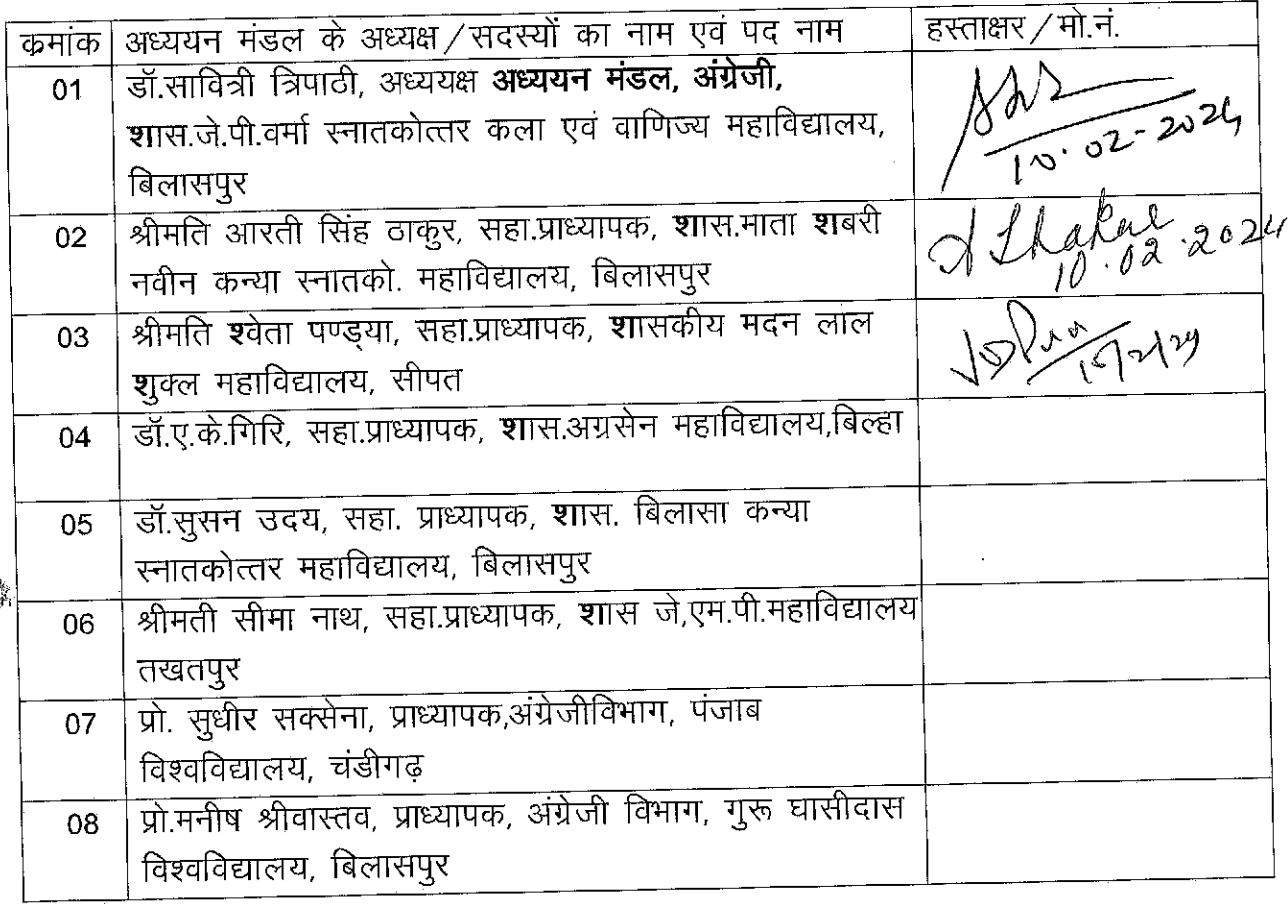 क्रमांक अध्ययन मंडल के अध्यक्ष/सदस्यों का नाम एवं पद नाम हस्ताक्षर/मो.नं.
01 डॉ.सावित्री त्रिपाठी, अध्ययक्ष अध्ययन मंडल, अंग्रेजी,
शास.जे.पी.वर्मा स्नातकोत्तर कला एवं वाणिज्य महाविद्यालय,
बिलासपुर
10.02-2024
02 श्रीमति आरती सिंह ठाकुर, सहा.प्राध्यापक, शास.माता शबरी
नवीन कन्या स्नातको. महाविद्यालय, बिलासपुर
Thakur
10.02.2024
03 श्रीमति श्वेता पण्ड्या, सहा.प्राध्यापक, शासकीय मदन लाल
शुक्ल महाविद्यालय, सीपत
04 डॉ.ए.के.गिरि, सहा.प्राध्यापक, शास.अग्रसेन महाविद्यालय,बिल्हा
05 डॉ.सुसन उदय, सहा. प्राध्यापक, शास. बिलासा कन्या
स्नातकोत्तर महाविद्यालय, बिलासपुर
06 श्रीमती सीमा नाथ, सहा.प्राध्यापक, शास जे,एम.पी.महाविद्यालय
तखतपुर
07 प्रो. सुधीर सक्सेना, प्राध्यापक,अंग्रेजीविभाग, पंजाब
विश्वविद्यालय, चंडीगढ़
08 प्रो.मनीष श्रीवास्तव, प्राध्यापक, अंग्रेजी विभाग, गुरू घासीदास
विश्वविद्यालय, बिलासपुर